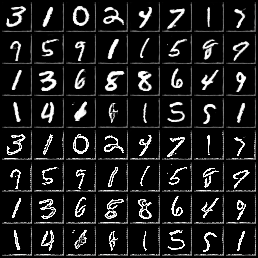 3 1 0 2 4 7 1 7
9 5 9 1 1 5 8 9
1 3 6 8 8 6 4 9
1 4 1 5 5 1
3 1 0 2 4 7 1 7
9 5 9 1 1 5 8 9
1 3 6 8 8 6 4 9
1 4 1 5 5 1